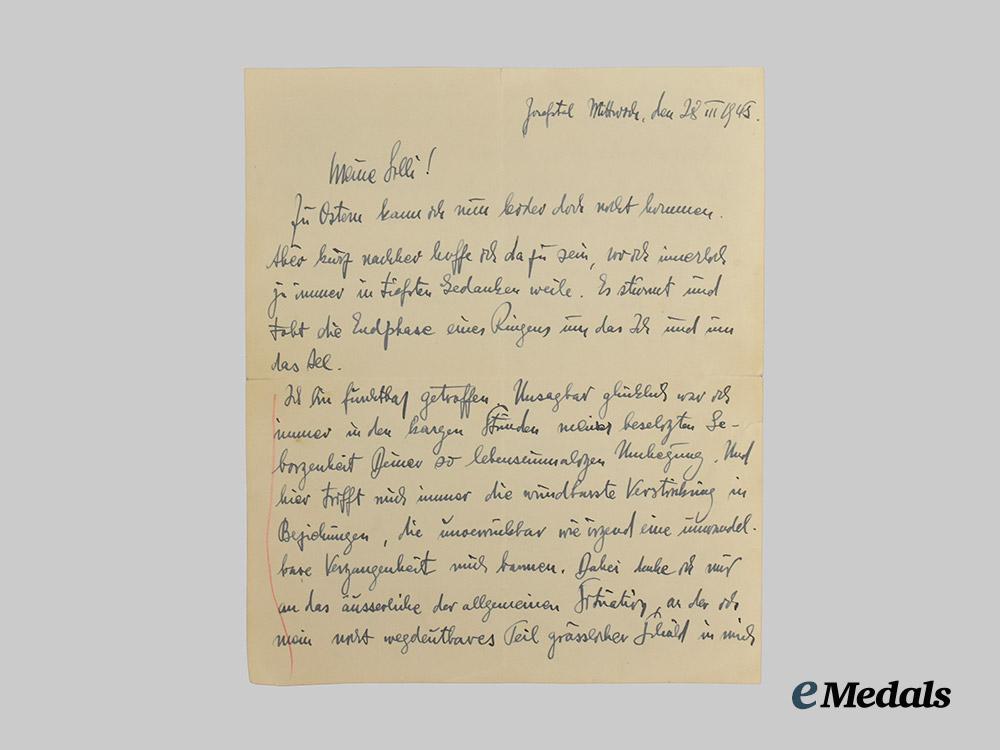 Josefstal Mittwoch, den 28 III 1945.
Meine Lilli!
Zu Ostern kann ich nun leider doch nicht kommen.
Aber kurz nachher hoffe ich da zu sein, wo ich innerlich
ja immer in tiefsten Gedanken weile. Es stürmt und
tobt die Endphase eines Ringens um das Ich und um
das All.
Ich bin furchtbar getroffen. Unsagbar glücklich war ich
immer in den kargen Stunden meiner beseligten Ge-
borgenheit Deiner so lebenseinmaligen Umhegung. Und
hier trifft mich immer die wundbarste Verstrickung in
Beziehungen, die unverrückbar wie irgend eine unwandel-
bare Vergangenheit mich bannen. Dabei denke ich nur
an das äusserliche der allgemeinen Situation, an der ich
mein nicht wegdeutbares Teil grässlicher Schuld in mich
eMedals